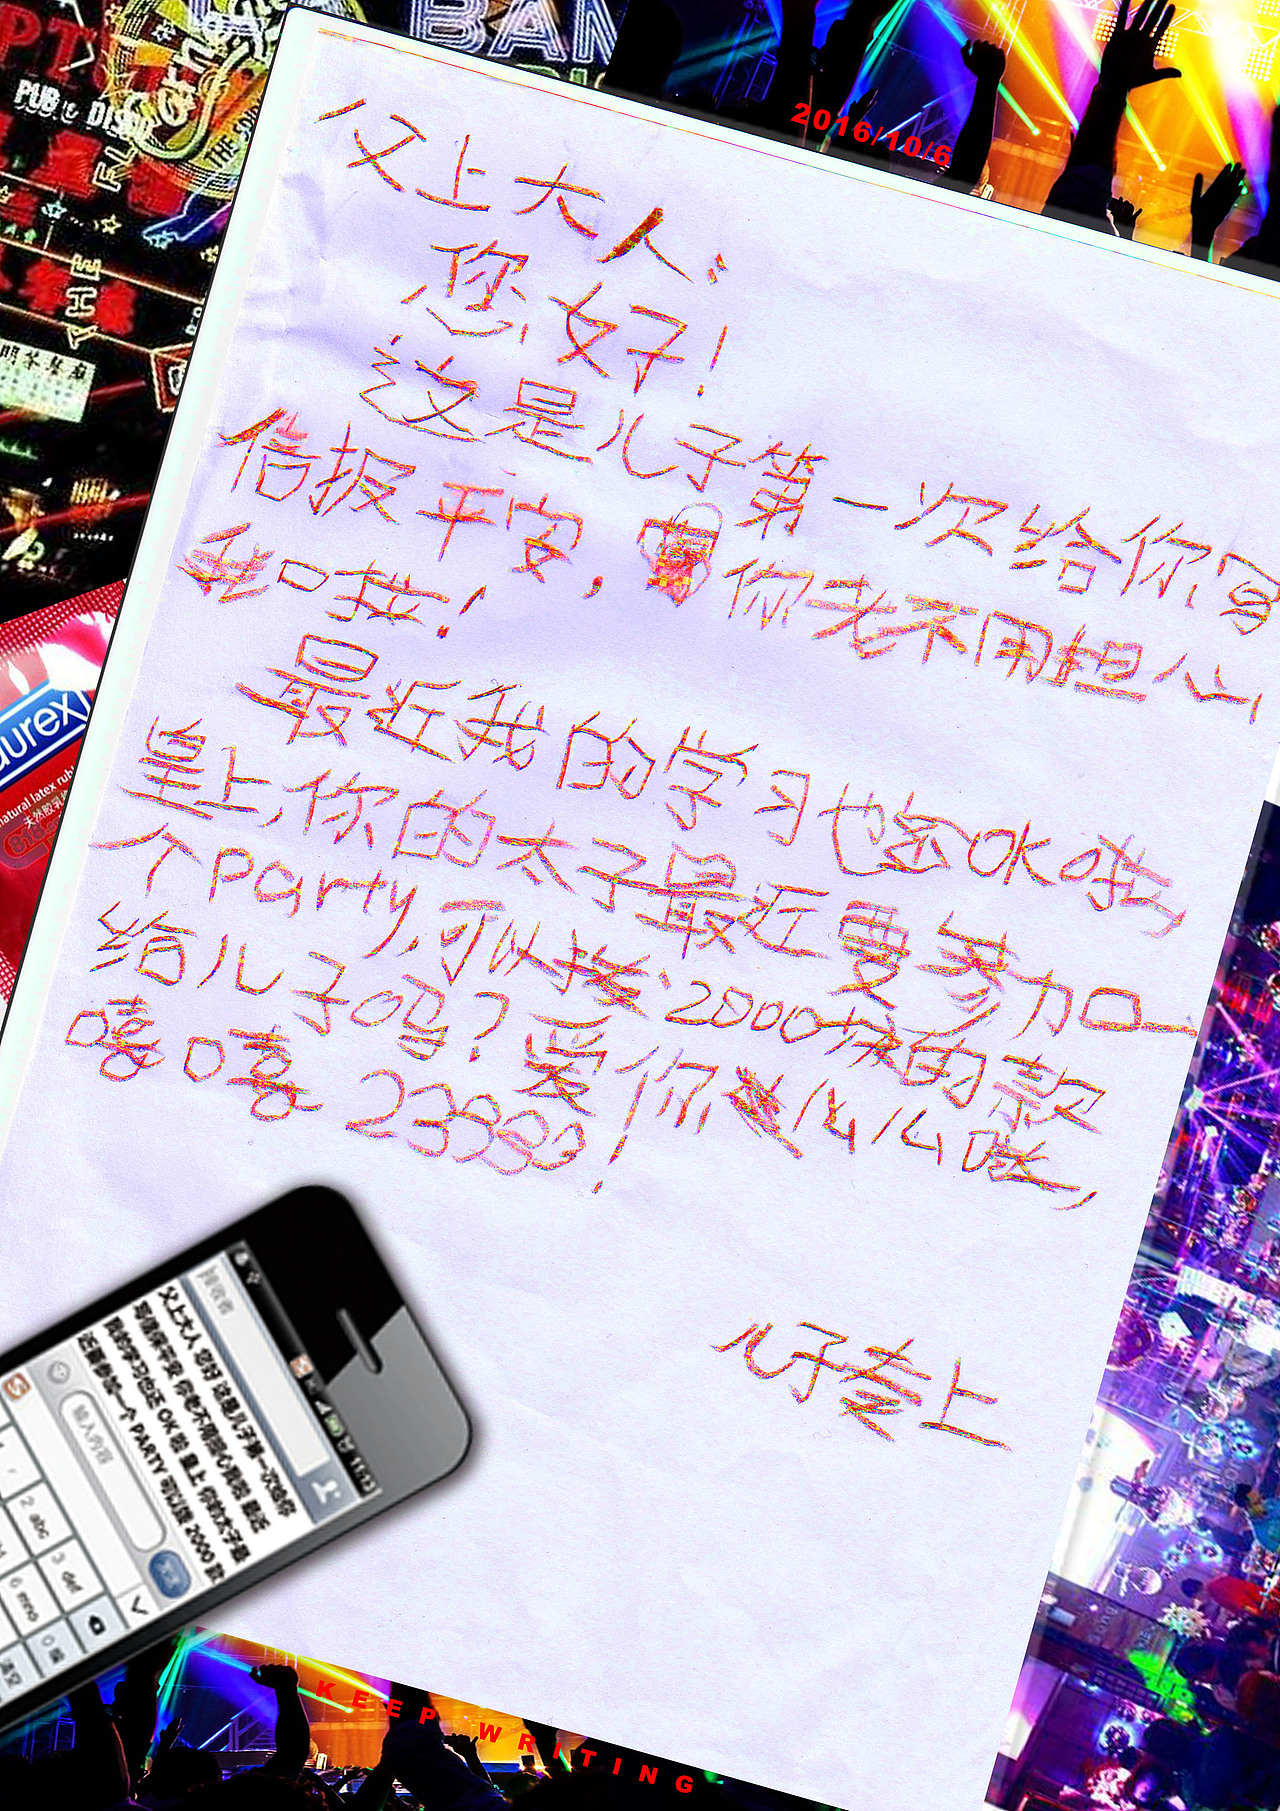 PUB & DISCO
THE
BAN
2016/10/6
父上大人:
您好!
这是儿子第一次给你写
信报平安,你老不用担心
我啦!
最近我的学习也还OK啦,
皇上,你的太子最近要参加一
个Party,可以拨2000块的款
给儿子吗?爱你么么哒,
嘻嘻2333!
儿子奉上
durex
natural latex rubber
天然胶乳
父上大人 你好 这是儿子第一次给你
写信保平安 你老不用担心我啦 最近
我的学习也还 OK 啦 皇上 你的太子最
近要参加一个 PARTY 可以拨 2000 款
2 abc
3 def
6 mno
KEEP WRITING